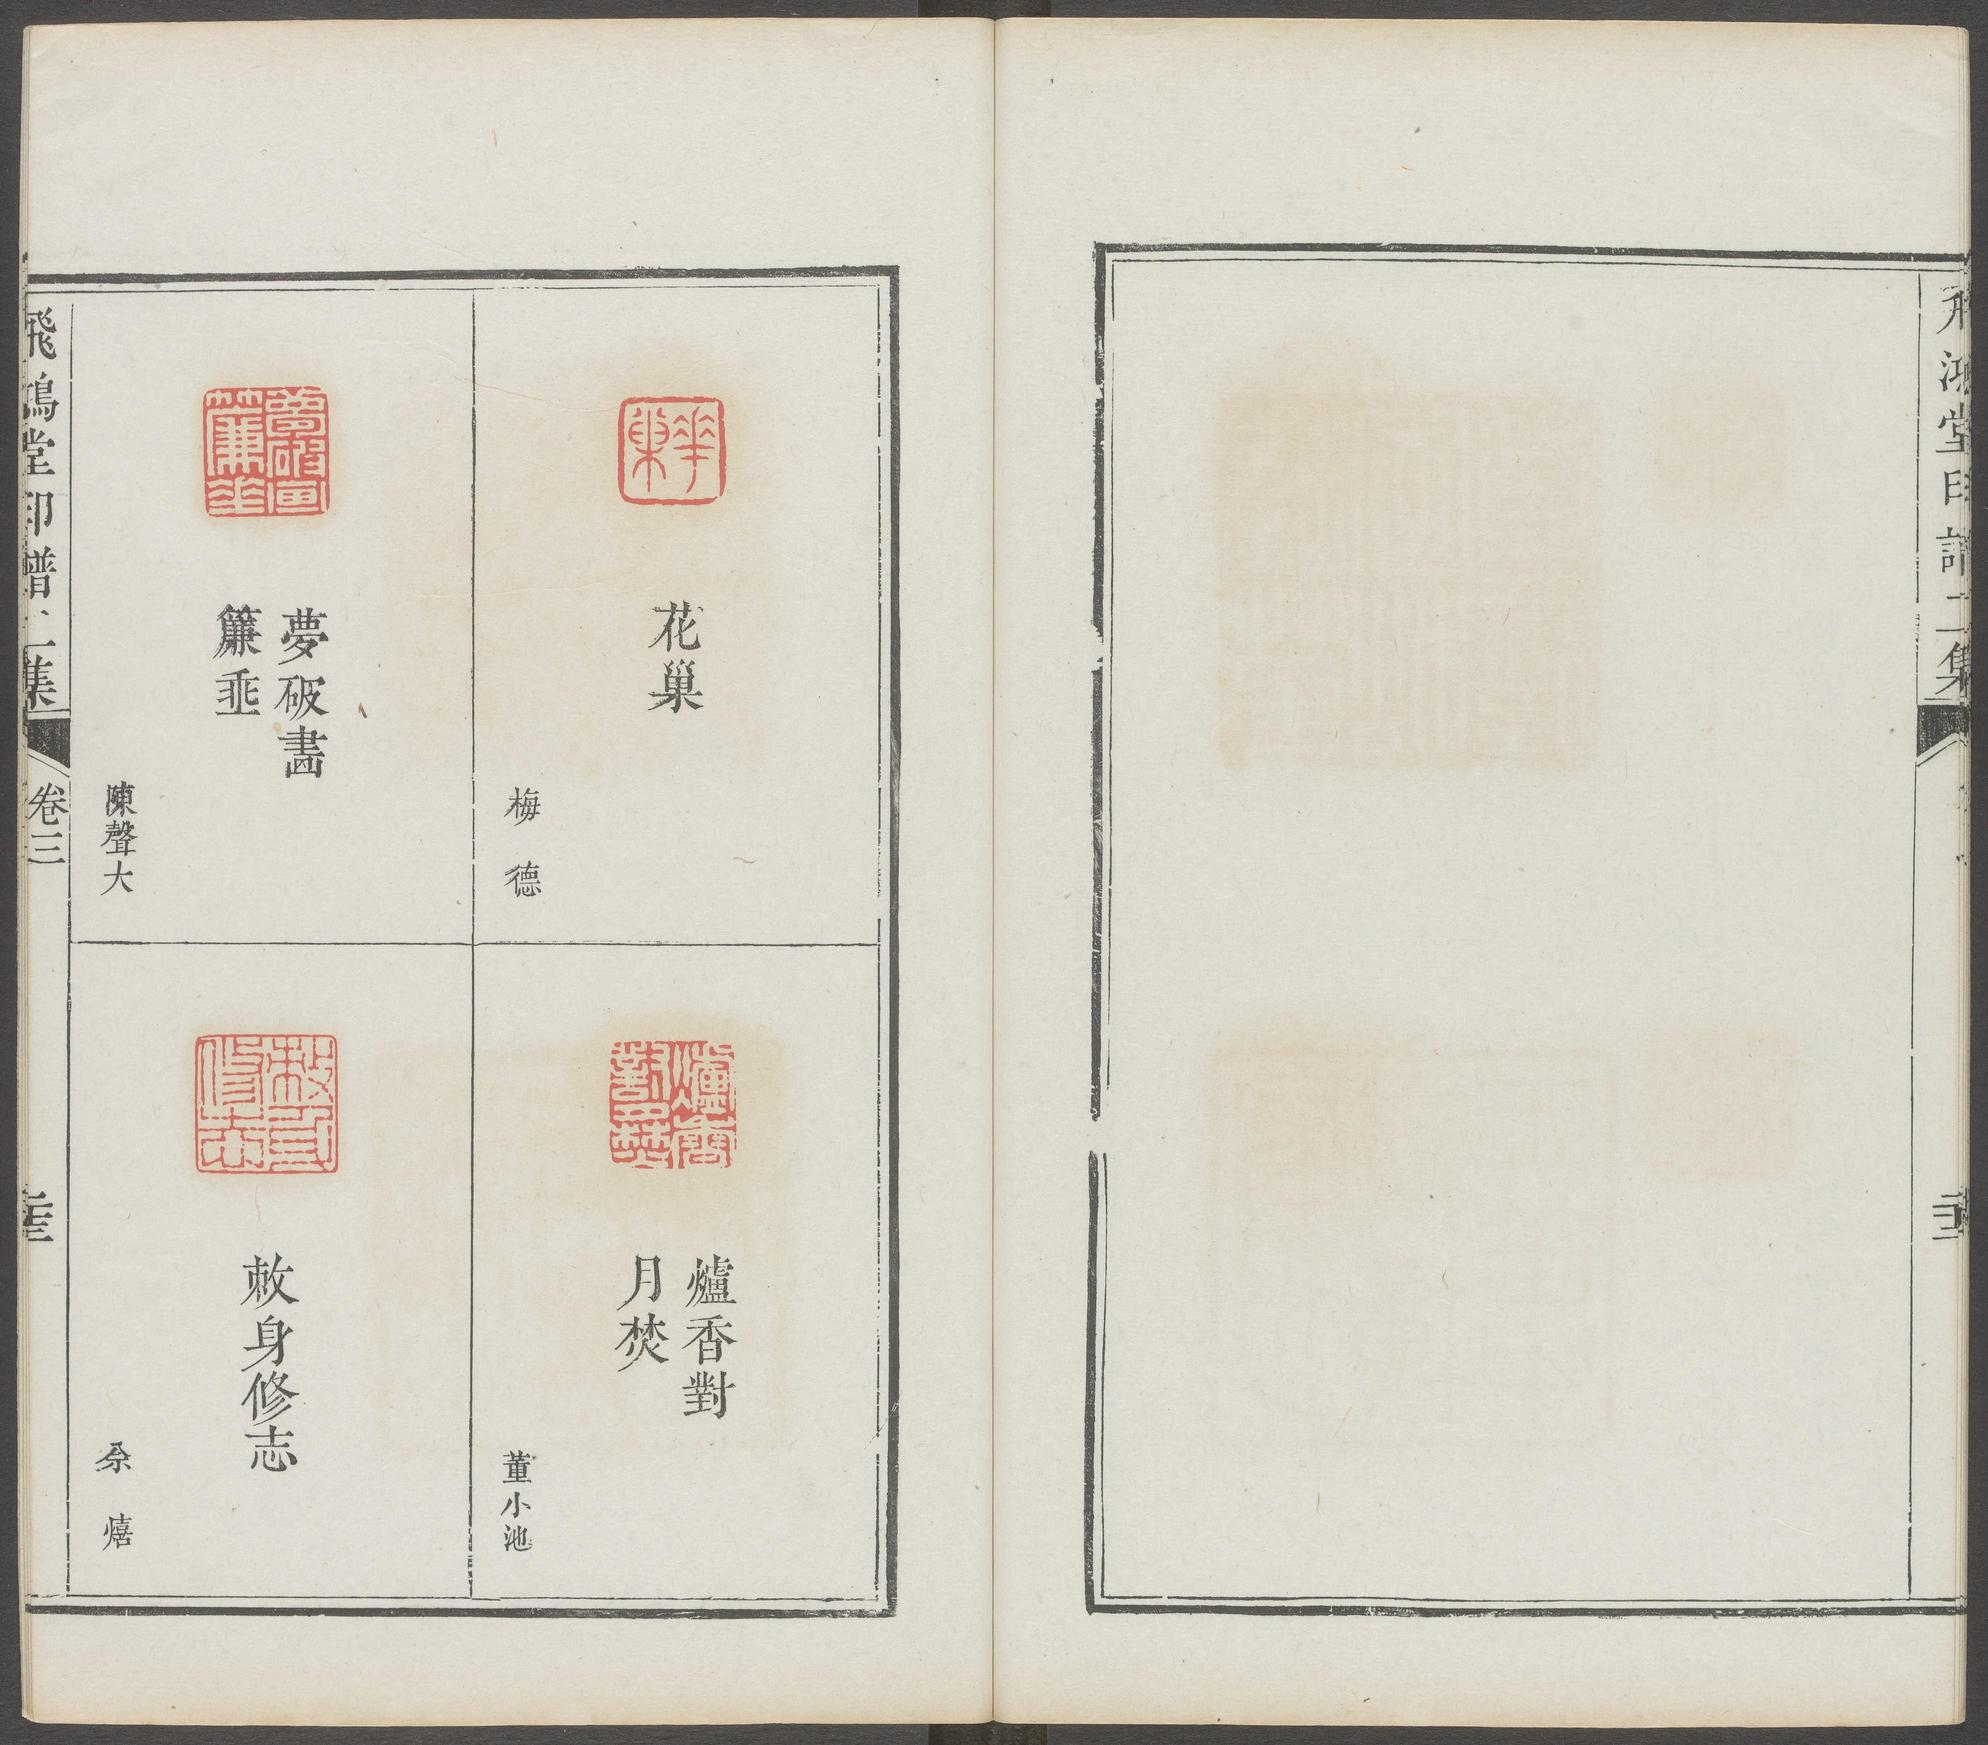 飛鴻堂印譜二集
花巢
梅德
爐香對
月焚
董小池
夢破畵
簾垂
陳聲大
敕身修志
余熺
飛鴻堂印譜二集
卷三